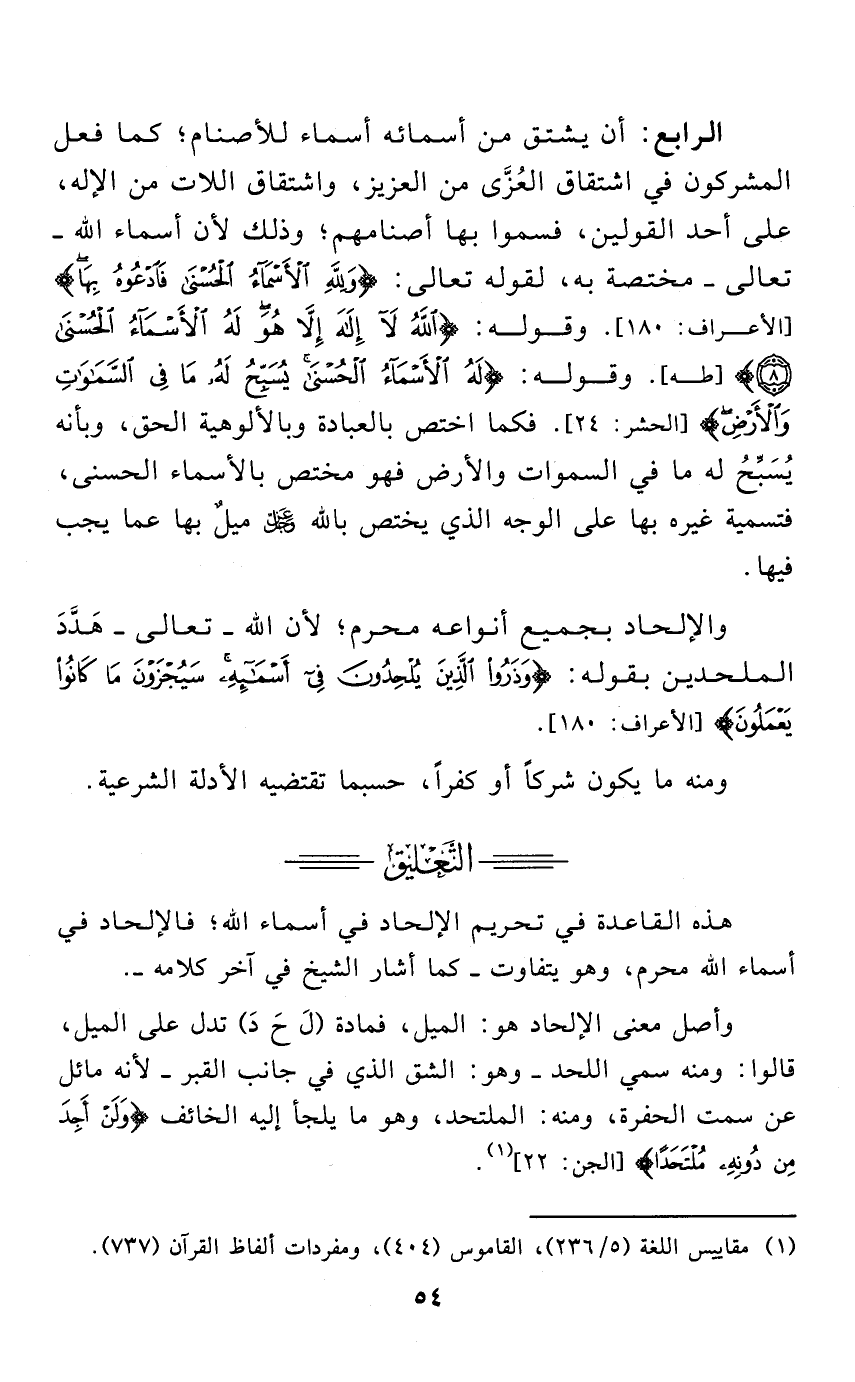 الرابع: أن يشتق من أسمائه أسماء للأصنام؛ كما فعل
المشركون في اشتقاق العُزَّى من العزيز، واشتقاق اللات من الإله،
على أحد القولين، فسموا بها أصنامهم؛ وذلك لأن أسماء الله ـ
تعالى ـ مختصة به، لقوله تعالى: ﴿وَلِلَّهِ ٱلْأَسْمَآءُ ٱلْحُسْنَىٰ فَٱدْعُوهُ بِهَا ۖ﴾
[الأعراف: ١٨٠]. وقوله: ﴿ٱللَّهُ لَآ إِلَٰهَ إِلَّا هُوَ ۖ لَهُ ٱلْأَسْمَآءُ ٱلْحُسْنَىٰ
۝٨﴾ [طه]. وقوله: ﴿لَهُ ٱلْأَسْمَآءُ ٱلْحُسْنَىٰ ۚ يُسَبِّحُ لَهُۥ مَا فِى ٱلسَّمَٰوَٰتِ
وَٱلْأَرْضِ ۖ﴾ [الحشر: ٢٤]. فكما اختص بالعبادة وبالألوهية الحق، وبأنه
يُسَبِّحُ له ما في السموات والأرض فهو مختص بالأسماء الحسنى،
فتسمية غيره بها على الوجه الذي يختص بالله ﷿ ميلٌ بها عما يجب
فيها.
والإلحاد بجميع أنواعه محرم؛ لأن الله ـ تعالى ـ هَدَّدَ
الملحدين بقوله: ﴿وَذَرُوا۟ ٱلَّذِينَ يُلْحِدُونَ فِىٓ أَسْمَٰٓئِهِۦ ۚ سَيُجْزَوْنَ مَا كَانُوا۟
يَعْمَلُونَ﴾ [الأعراف: ١٨٠].
ومنه ما يكون شركاً أو كفراً، حسبما تقتضيه الأدلة الشرعية.
التَّعْليق
هذه القاعدة في تحريم الإلحاد في أسماء الله؛ فالإلحاد في
أسماء الله محرم، وهو يتفاوت ـ كما أشار الشيخ في آخر كلامه ـ.
وأصل معنى الإلحاد هو: الميل، فمادة (لَ حَ دَ) تدل على الميل،
قالوا: ومنه سمي اللحد ـ وهو: الشق الذي في جانب القبر ـ لأنه مائل
عن سمت الحفرة، ومنه: الملتحد، وهو ما يلجأ إليه الخائف ﴿وَلَنْ أَجِدَ
مِن دُونِهِۦ مُلْتَحَدًا﴾ [الجن: ٢٢]<sup>(١)</sup>.
(١) مقاييس اللغة (٥/٢٣٦)، القاموس (٤٠٤)، ومفردات ألفاظ القرآن (٧٣٧).
٥٤